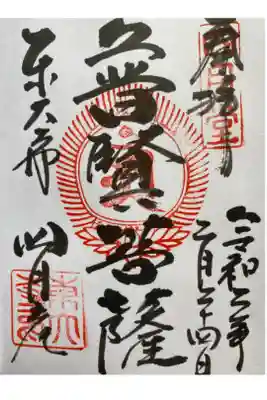 奉拝
令和六年
二月二十四日
普賢菩薩
東大寺
四月堂